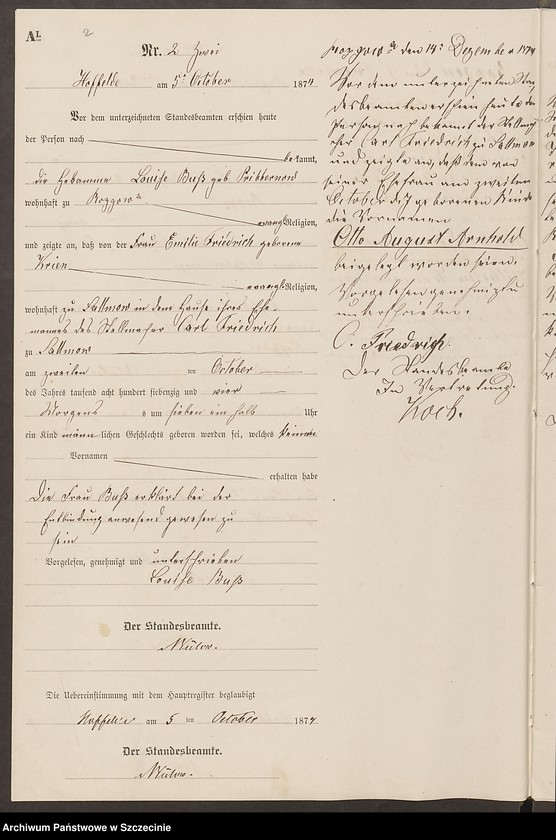 A1.
2
Nr. 2 Zwei
Hoffelde am 5t October 1874
Vor dem unterzeichneten Standesbeamten erschien heute
der Person nach
bekannt,
die Hebamme Louise Buß geb Pribbernow
wohnhaft zu Roggow A
evangl. Religion,
und zeigte an, daß von der Frau Emilie Friedrich geborene
Krien
evangl. Religion,
wohnhaft zu Sallmow in dem Hause ihres Ehe-
mannes des Stellmacher Carl Friedrich
zu Sallmow
am zweiten ten October
des Jahres tausend acht hundert siebenzig und vier
Morgens um sieben ein halb Uhr
ein Kind männlichen Geschlechts geboren worden sei, welches keine
Vornamen
erhalten habe
Die Frau Buß erklärt bei der
Entbindung anwesend gewesen zu
sein
Vorgelesen, genehmigt und unterschrieben
Louise Buß
Der Standesbeamte.
Die Uebereinstimmung mit dem Hauptregister beglaubigt
Hoffelde am 5 ten October 1874.
Der Standesbeamte.
Roggow A den 14t Dezember 1874
Vor dem unterzeichneten Stan
desbeamten erschien heute der
Person nach bekannt der Stellmach
er Carl Friedrich zu Sallmow
und zeigte an, daß dem von
seiner Ehefrau am zweiten
October d. J. geborenen Kinde
die Vornamen
Otto August Arnhold
beigelegt worden seien.
Vorgelesen genehmigt u
unterschrieben.
C. Friedrich
Der Standesbeamte
In Vertretung.
Koch.
Archiwum Państwowe w Szczecinie